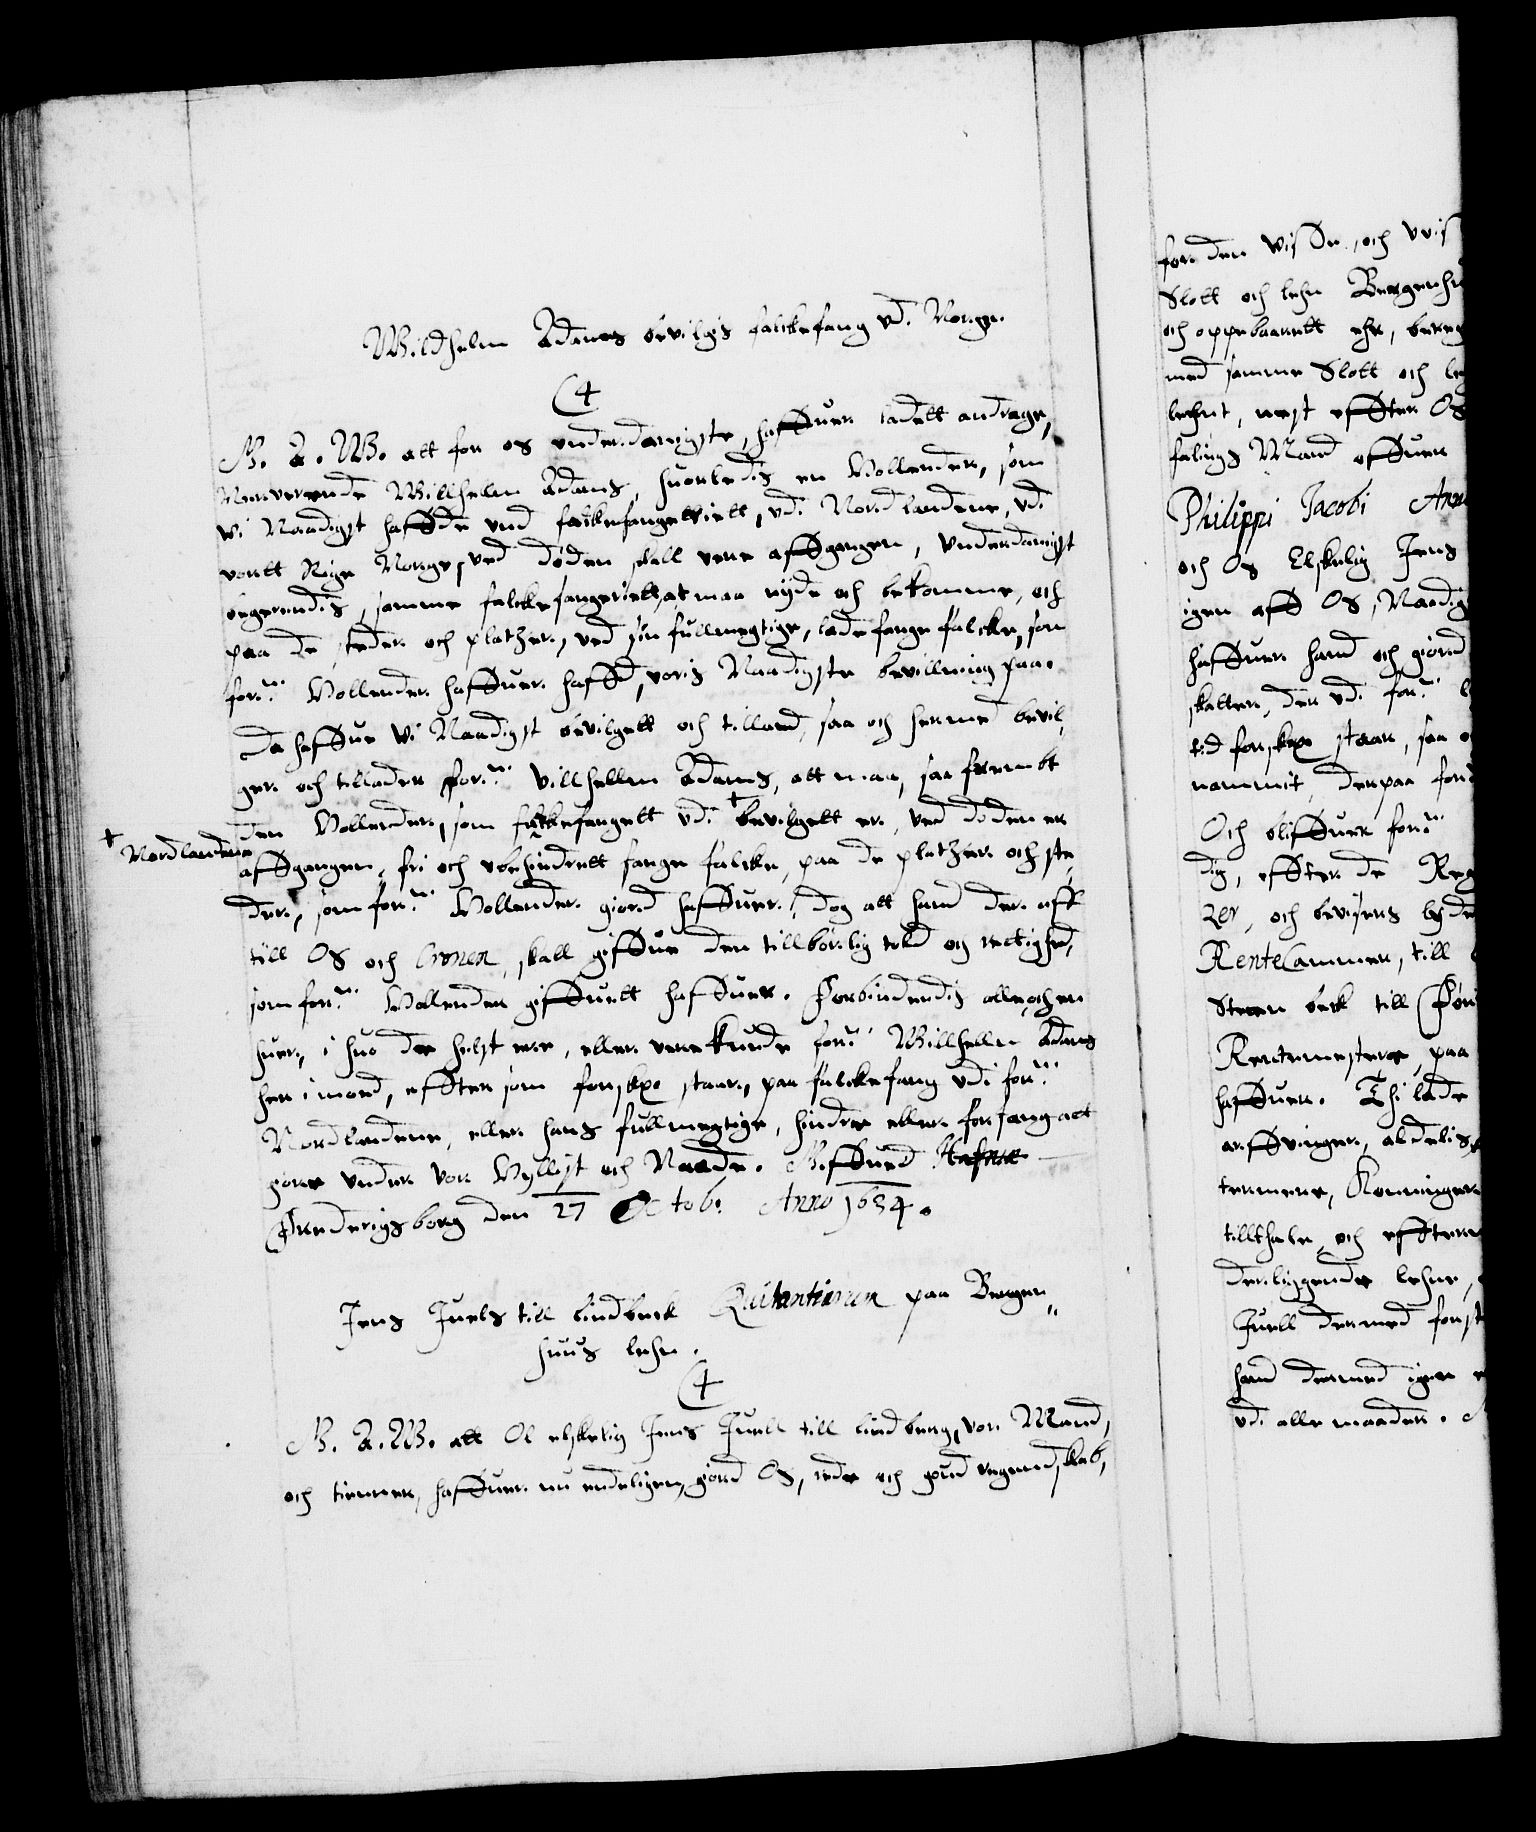 Wildhelm Adams bevilgis falckefang vdi Norge.
C4
G. A. W. att for os vnderdanigste, haffuer ladett andrage,
Nerverende Willhelm Adams, huorledis en Hollender, som
wi Naadigst haffde vnd falckefangeriett, vdi Nordlandene, vdi
vortt Rige Norge, ved døden skall vere affgangen, Vnderdanigst
begerendis, samme falckefangeriett, at maa nyde och bekomme, och
paa de steder och platzer, ved sin fullmegtige, lade fange falcke, som
forne Hollender haffuer hafft, voris Naadigste bevillning paa.
Da haffue Wi Naadigst bevilgett och tilladt, saa och hermed bevil,
ger och tillader forne Villhellm Adams, att maa, saa frembt
den Hollender, som falckefangett vdi † bevilgett er, ved døden er
† Nordlandene
affgangen, fri och vbehindrett fange falcke, paa de platzer och ste,
der, som forne Hollender giord haffuer, dog att hand der aff
till Os och Cronen, skall giffue den tillbørlig told og rettighed,
som forne Hollender giffuett haffuer. Forbindendis alle och en
huer, i huo de helst ere, eller vere kunde forne Willhellm Adams
her imod, effter som forskreffuit staar, paa falckefang vdi forne
Nordlandene, eller hans fullmegtige, hindre eller forfang att
giøre vnder vor Hyllest och Naade. Giffued Hafniæ
Frederigsborg den 27 Octob: Anno 1634.
Jens Juels till Lindberk Quitantierer paa Bergen,,
huus lehn.
C4
G. A. W. att Os elskelig Jens Juell till Lindberg, vor Mand,
och tienner, haffuer nu endeligen, giord Os, rede och goed regennd,skab,
for den Visse, och Vvis
Slott och lehn Bergenhu
och oppebaarett ehr, bereg
med samme Slott och le
lehnt, nest effter Os
falings Mand effuer
Philippi Jacobi Ann
och Os Elskelig Jens
igen aff Os, Naadig
haffuer hand och giord
skatter, der vdi forne
tid forskreffne staar, saa o
nammit, derpaa ford
Och bliffuer forne
dig, effter de Reg
zer, och bevisers lyde
RenteCammer, till
Steen berk till For
Rentemestere, paa
haffuer. Thi lade
arffvinger, aldelis,
termere, Konninger
tillthale, och effterm
derliggende lehne,
Juell dermed forst
hand dermed igen
vdi alle maader.